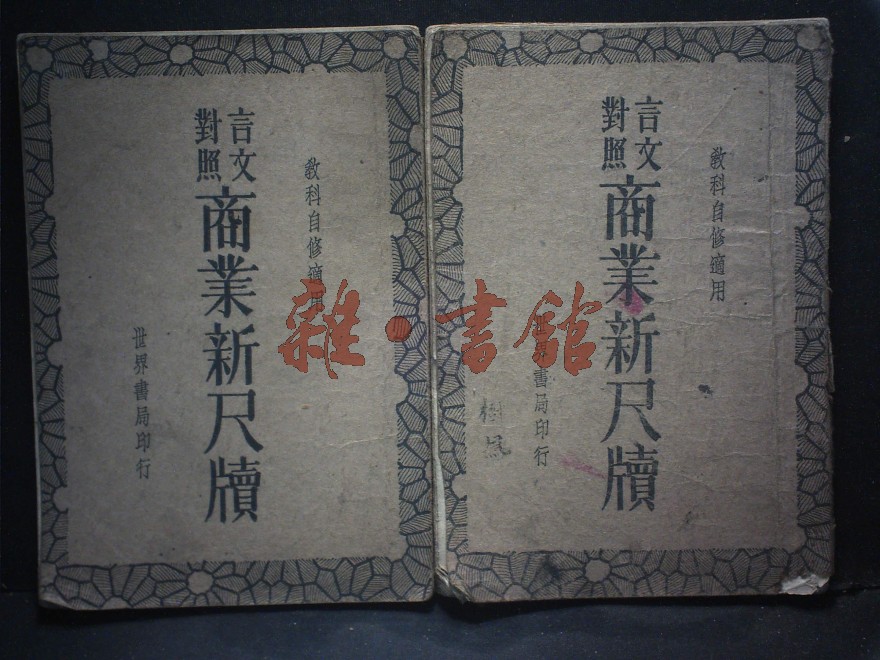 教科自修適用
言文
對照
商業新尺牘
世界書局印行
教科自修適用
言文
對照
商業新尺牘
世界書局印行
雜·書館